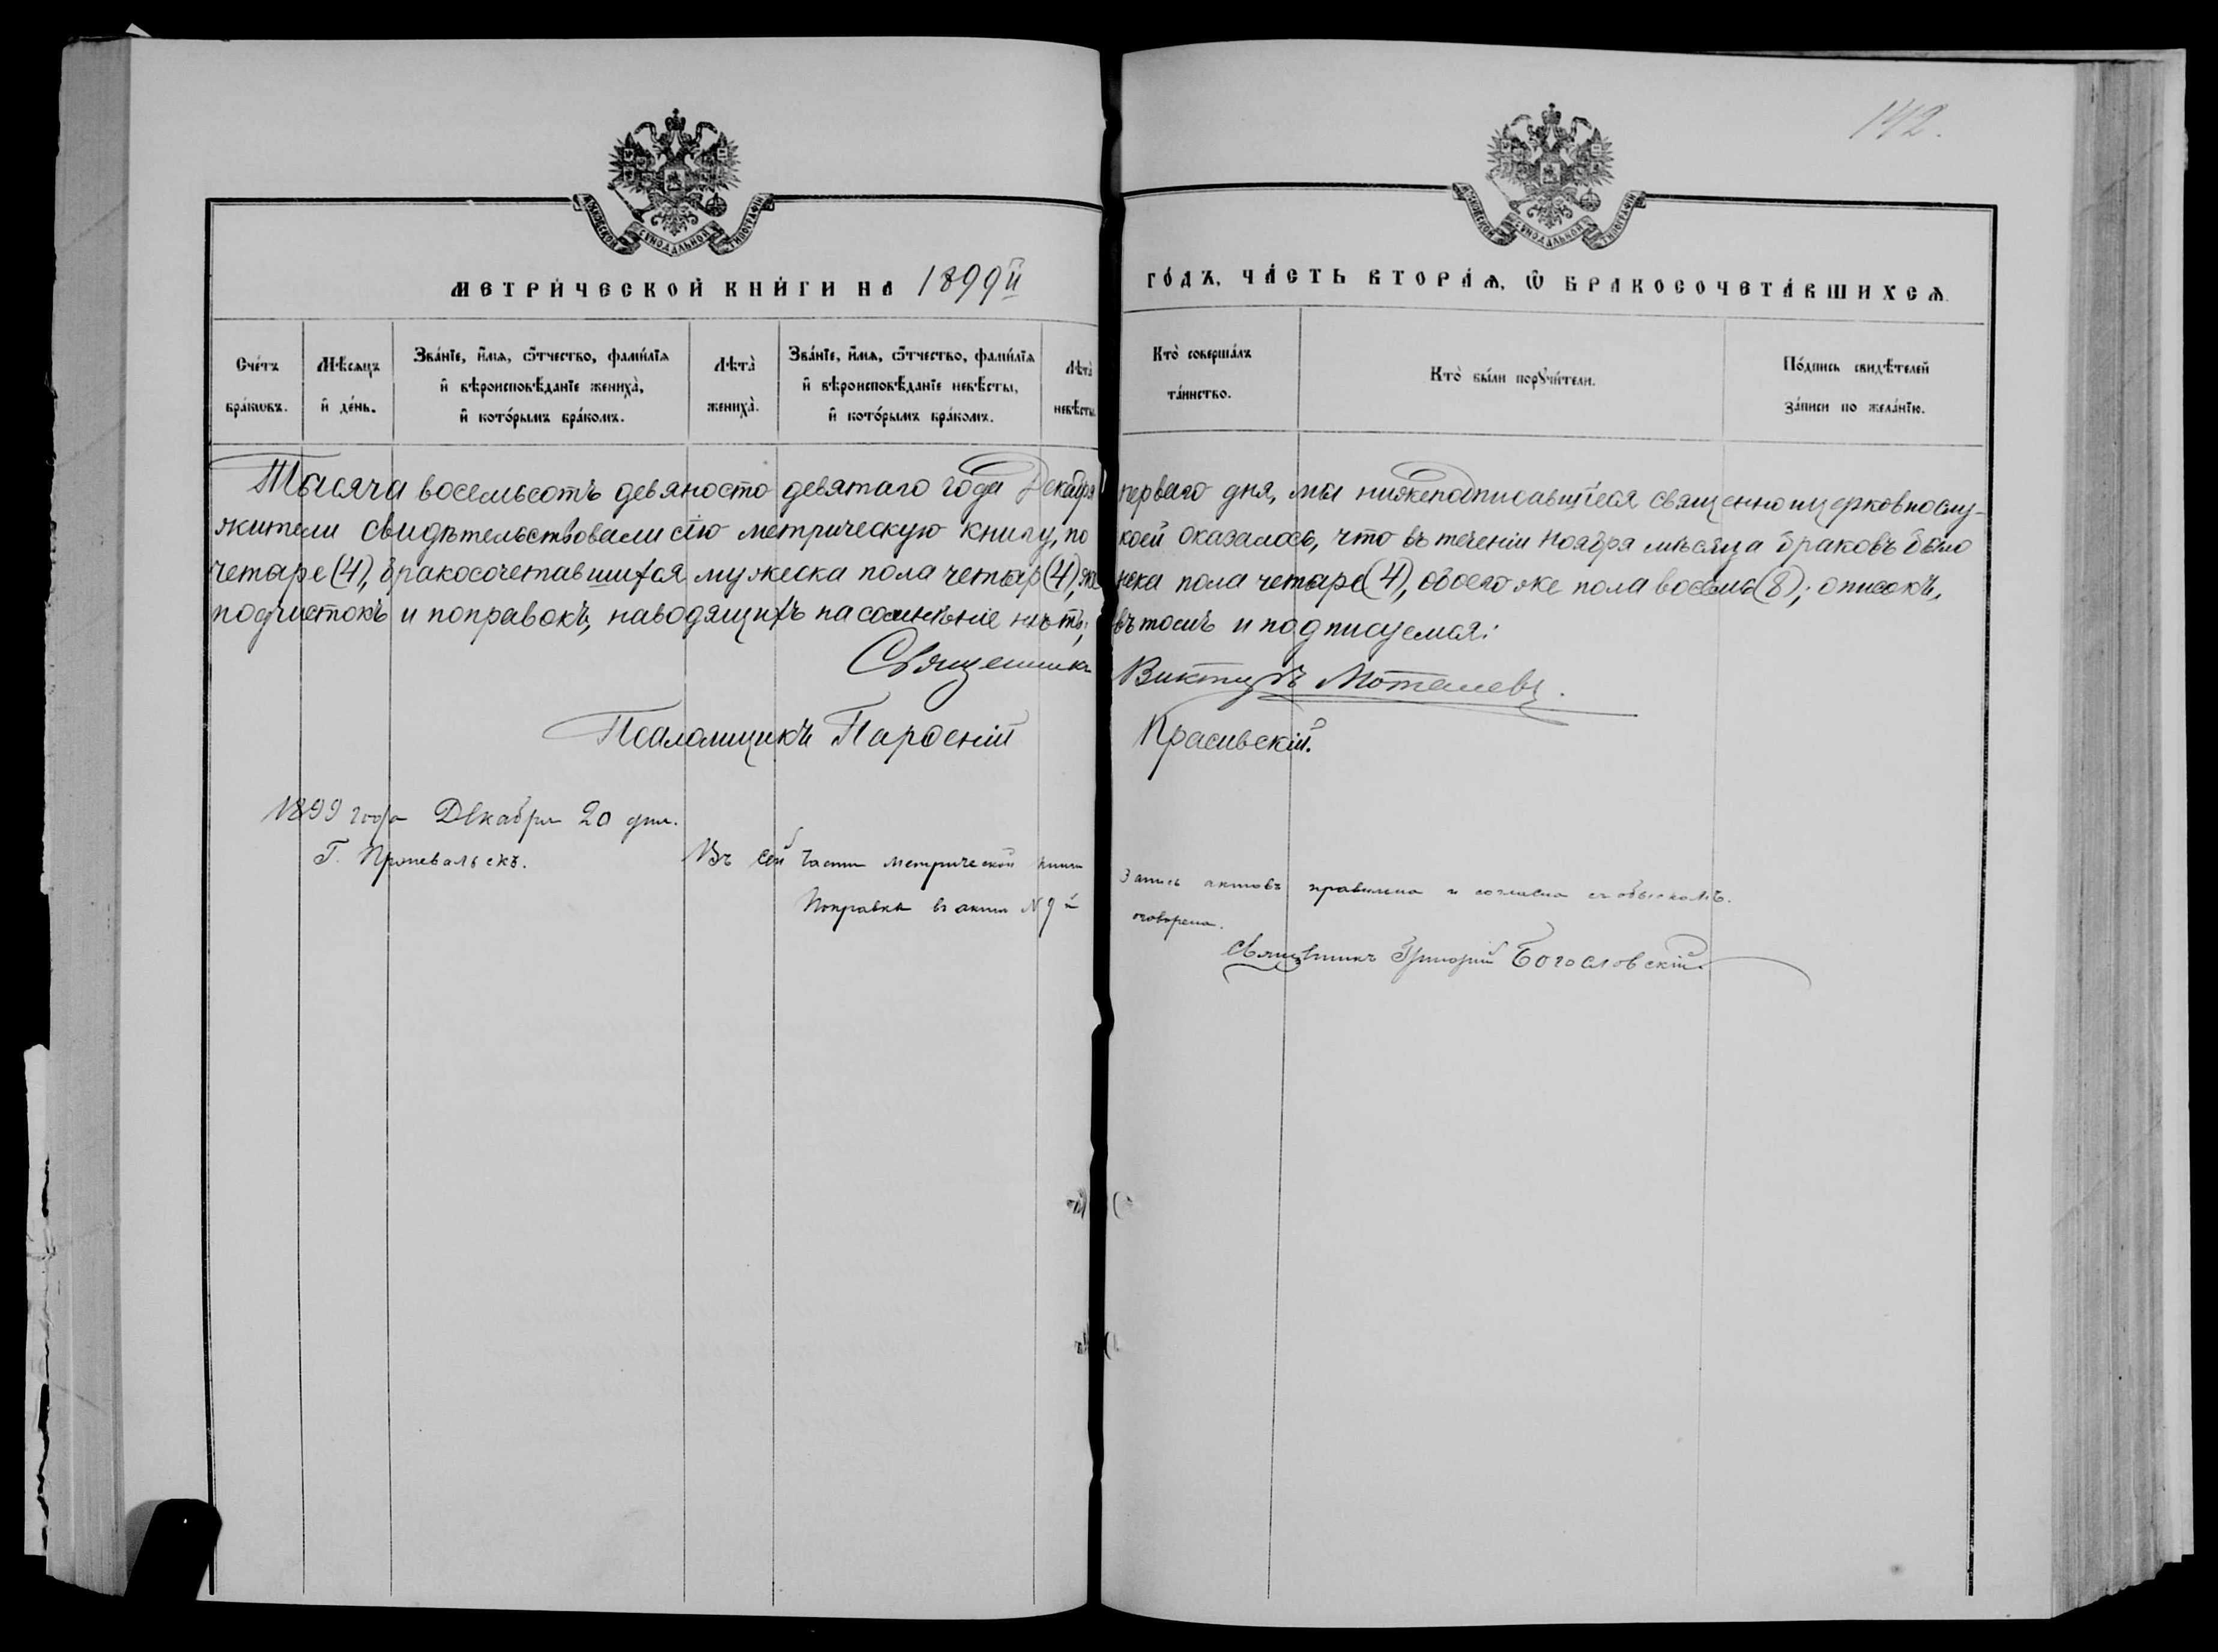 142.
МОСКОВСКОЙ СѴНОДАЛЬНОЙ ТИПОГРАФІИ
МОСКОВСКОЙ СѴНОДАЛЬНОЙ ТИПОГРАФІИ
МЕТРИ́ЧЕСКОЙ КНИ́ГИ НА 1899й ГО́ДЪ, ЧА́СТЬ ВТОРА́Ѧ, Ѿ БРАКОСОЧЕТА́ВШИХСѦ.
Сче́тъ бра́кѡвъ.
Мѣ́сѧцъ и҆ де́нь.
Зва́нїе, и҆́мѧ, ѻ҆́тчество, фами́лїѧ и҆ вѣроисповѣ́данїе жениха̀, и҆ кото́рымъ бра́комъ.
Лѣта̀ жениха̀.
Зва́нїе, и҆́мѧ, ѻ҆́тчество, фами́лїѧ и҆ вѣроисповѣ́данїе невѣ́сты, и҆ кото́рымъ бра́комъ.
Лѣта̀ невѣ́сты.
Кто̀ соверша́лъ та́инство.
Кто̀ бы́ли порꙋчи́тели.
По́дпись свидѣ́телей за́писи по жела́нїю.
Тысяча восемьсотъ девяносто девятаго года Декабря перваго дня, мы нижеподписавшіеся священноицерковнослу-
жители свидѣтельствовали сію метрическую книгу, по коей оказалось, что въ теченіи Ноября мѣсяца браковъ было
четыре (4), бракосочетавшихся мужеска пола четыр (4), женска пола четыре (4), обоего же пола восемь (8); описокъ,
подчистокъ и поправокъ, наводящихъ на сомнѣніе нѣтъ; въ томъ и подписуемся:
Священникъ
Псаломщикъ Парѳеній Красивскій.
1899 года Декабря 20 дня.
Г. Пржевальскъ.
Въ сей части метрической книги Запись актовъ правильна и согласна съ обыскомъ.
Поправка въ актѣ № 9й оговорена.
Священникъ Григорій Богословскій